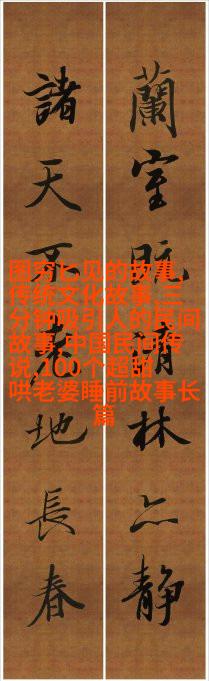 蘭室清林亦静
諸天不地長春
图穷匕见的故事,
传统文化故事,三
分钟吸引人的民间
故事,中国民间传
说,100个超甜
哄老婆睡前故事长
篇